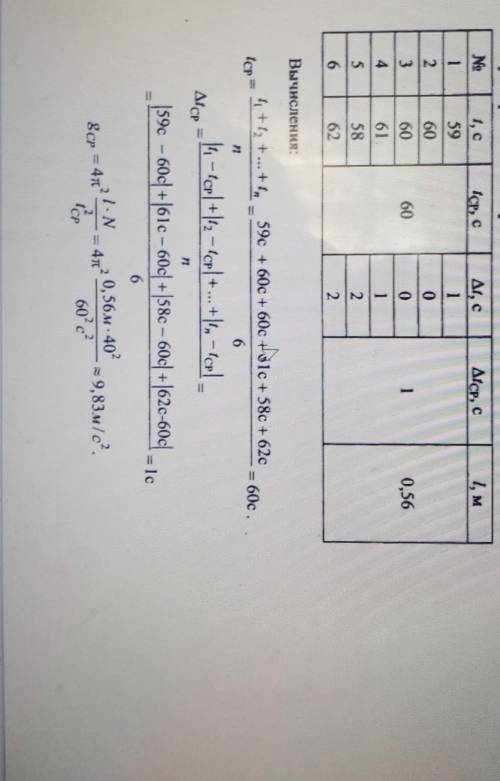 № t, с tСР, с Δt, с ΔtСР, с l, м
1 59 60 1 1 0,56
2 60 0
3 60 0
4 61 1
5 58 2
6 62 2
Вычисления:
tСР = (t₁ + t₂ + ... + tₙ)/n = (59с + 60с + 60с + 61с + 58с + 62с)/6 = 60с.
ΔtСР = (|t₁ − tСР| + |t₂ − tСР| + ... + |tₙ − tСР|)/n =
= (|59с − 60с| + |61с − 60с| + |58с − 60с| + |62с-60с|)/6 = 1с
gСР = 4π² (l · N²)/(t²СР) = 4π² (0,56м · 40²)/(60² с²) ≈ 9,83м/с².